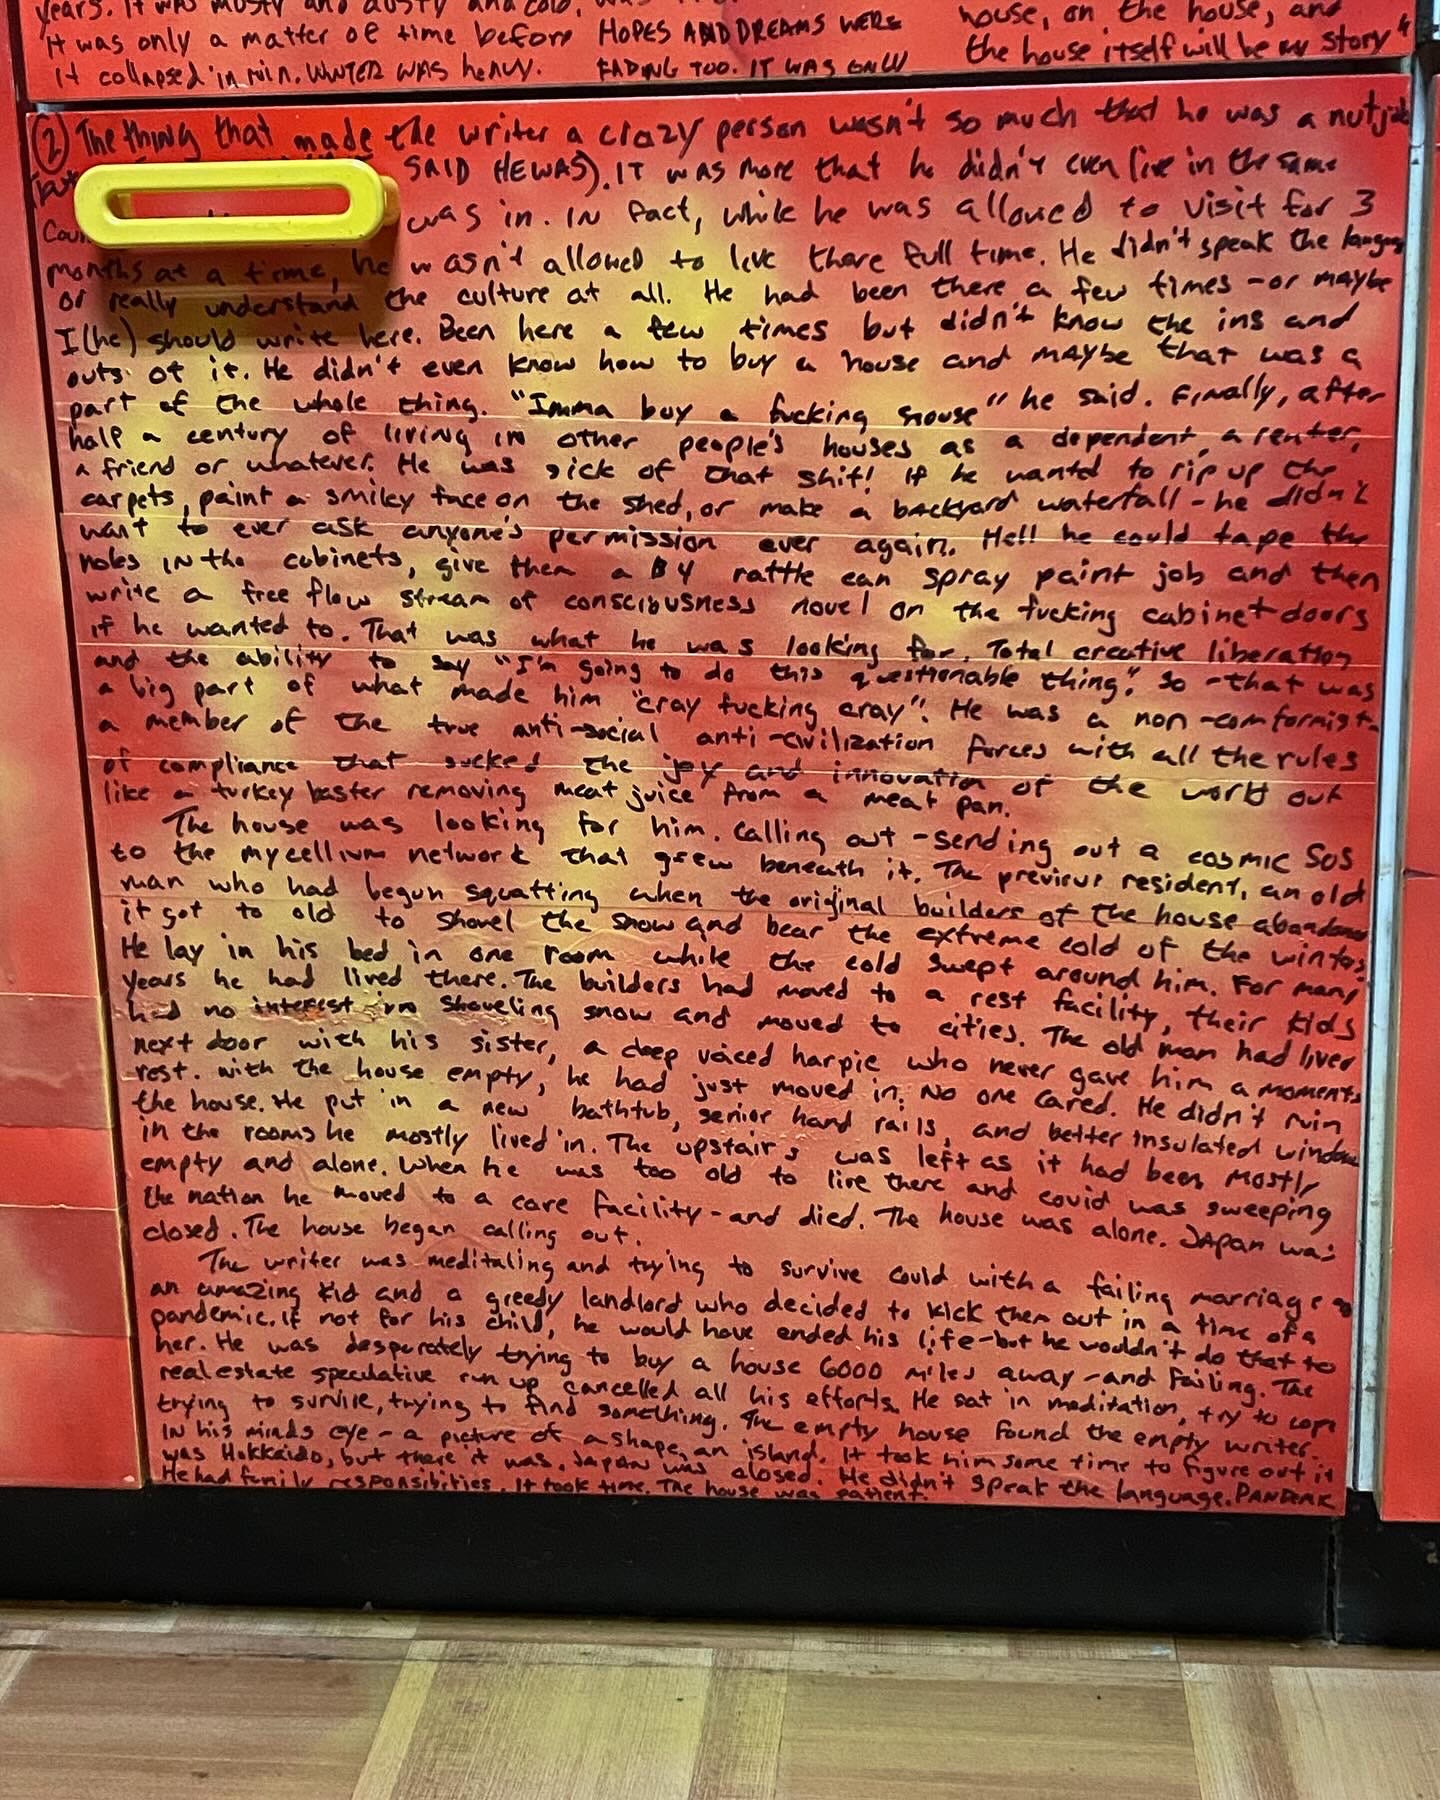 years. It was musty and dusty and cold,
it was only a matter of time before
it collapsed in ruin. WINTER WAS heavy.
HOPES AND DREAMS WERE
FADING TOO. IT WAS ONLY
house, on the house, and
the house itself will be my story"
② The thing that made the writer a crazy person wasn't so much that he was a nutjob
SAID HE WAS). IT was more that he didn't even live in the same
was in. IN fact, while he was allowed to visit for 3
months at a time, he wasn't allowed to live there full time. He didn't speak the language
or really understand the culture at all. He had been there a few times - or maybe
I (he) should write here. Been here a few times but didn't know the ins and
outs of it. He didn't even know how to buy a house and maybe that was a
part of the whole thing. "Imma buy a fucking house" he said. Finally, after
half a century of living in other people's houses as a dependent, a renter,
a friend or whatever. He was sick of that shit! If he wantd to rip up the
carpets, paint a smiley face on the shed, or make a backyard waterfall - he didn't
want to ever ask anyone's permission ever again. Hell he could tape the
holes in the cabinets, give them a $4 rattle can spray paint job and then
write a free flow stream of consciousness novel on the fucking cabinet doors
if he wanted to. That was what he was looking for. Total creative liberation
and the ability to say "I'm going to do this questionable thing." So - that was
a big part of what made him "cray fucking cray". He was a non-comformist -
a member of the true anti-social anti-civilization forces with all the rules
of compliance that sucked the joy and innovation of the world out
like a turkey baster removing meat juice from a meat pan.
The house was looking for him. Calling out - sending out a cosmic SOS
to the mycellium network that grew beneath it. The previous resident, an old
man who had begun squatting when the original builders of the house abandoned
it got to old to shovel the snow and bear the extreme cold of the winter.
He lay in his bed in one room while the cold swept around him. For many
years he had lived there. The builders had moved to a rest facility, their kids
had no interest in shoveling snow and moved to cities. The old man had lived
next door with his sister, a deep voiced harpie who never gave him a moments
rest. With the house empty, he had just moved in. No one cared. He didn't ruin
the house. He put in a new bathtub, senior hand rails, and better insulated windows
in the rooms he mostly lived in. The upstairs was left as it had been mostly
empty and alone. When he was too old to live there and covid was sweeping
the nation he moved to a care facility - and died. The house was alone. JAPAN was
closed. The house began calling out.
The writer was meditating and trying to survive Covid with a failing marriage
an amazing kid and a greedy landlord who decided to kick them out in a time of a
pandemic. If not for his child, he would have ended his life - but he wouldn't do that to
her. He was desperately trying to buy a house 6000 miles away - and failing. The
real estate speculative run up cancelled all his efforts. He sat in meditation, try to cope
trying to survive, trying to find something. The empty house found the empty writer.
IN his minds eye - a picture of a shape, an island. It took him some time to figure out it
was Hokkaido, but there it was. Japan was closed. He didn't speak the language. PANDEMIC
He had family responsibilities. It took time. The house was patient.